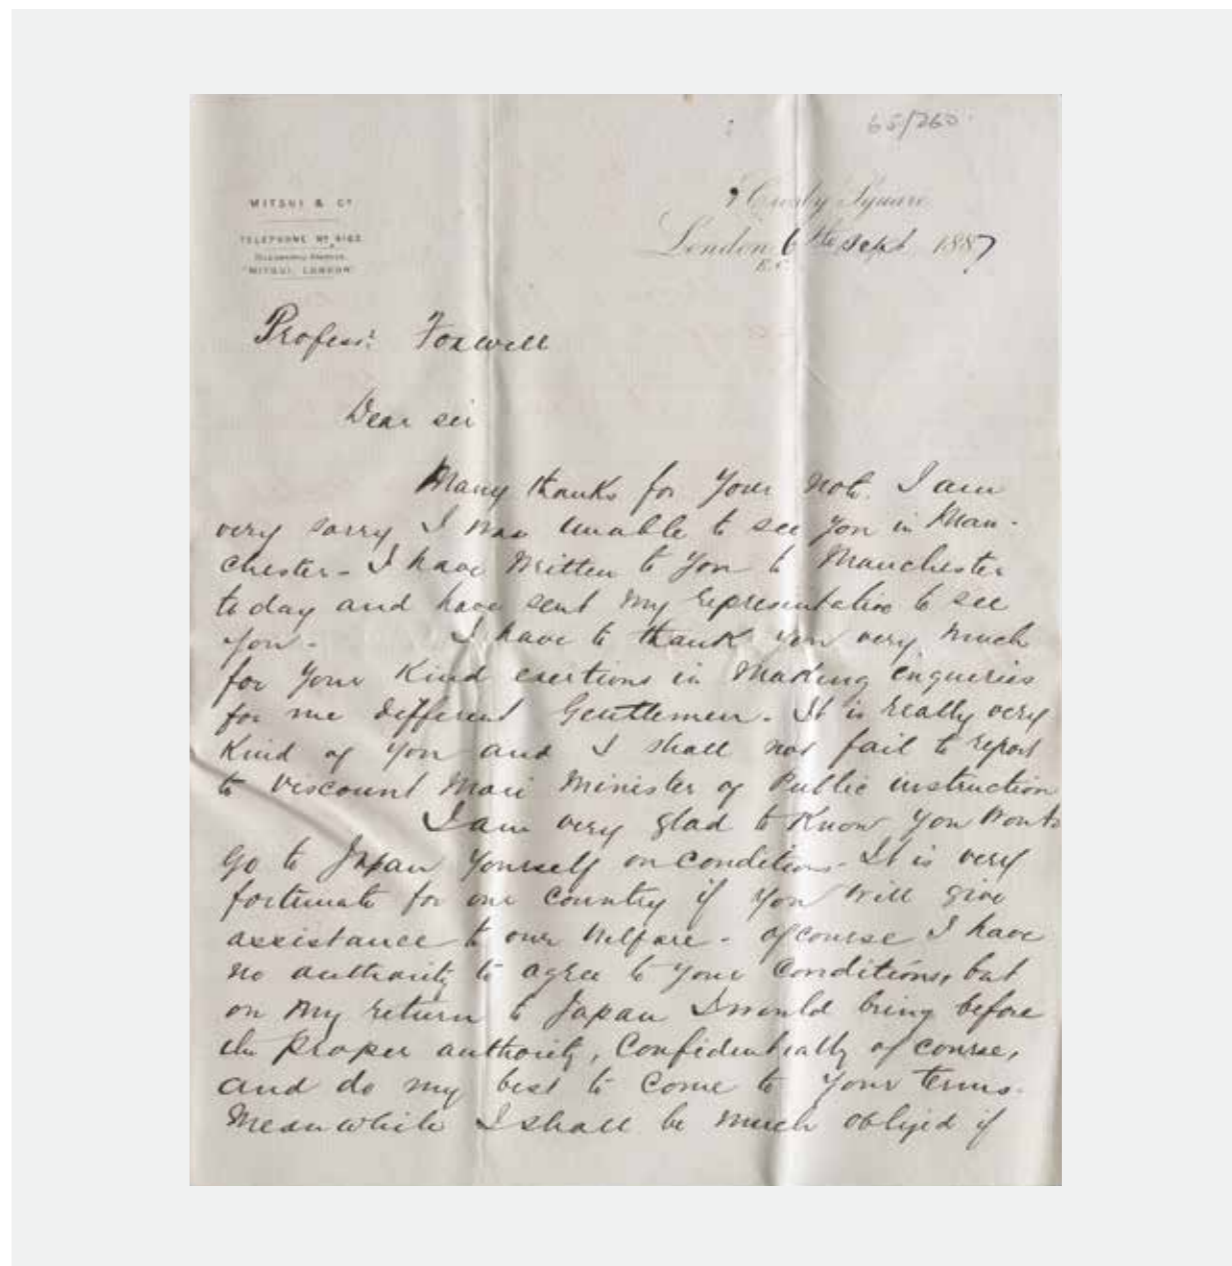 65/260
MITSUI & Co
TELEPHONE No
TELEGRAPHIC ADDRESS,
"MITSUI, LONDON"
9 Crosby Square
London 6th Sept 1887
E.C.
Professr. Foxwell
Dear sir
Many thanks for your note. I am
very sorry I was unable to see you in Man-
chester - I have written to you to Manchester
today and have sent my representative to see
you - I have to thank you very much
for your kind exertions in making enquiries
for me different Gentlemen. It is really very
kind of you and I shall not fail to report
to Viscount Mori Minister of Public instruction
I am very glad to know you
go to Japan yourself on conditions - It is very
fortunate for our country if you will give
assistance to our welfare - of course I have
no authority to agree to your conditions, but
on my return to Japan I would bring before
the proper authority, Confidentially of course,
and do my best to come to your terms.
Meanwhile I shall be much obliged if